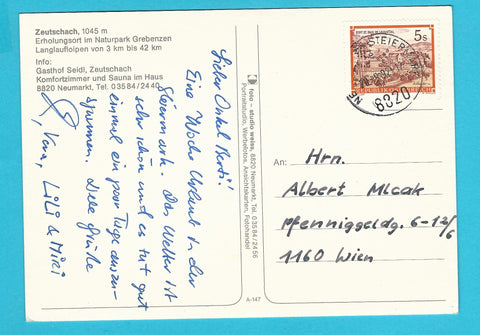 Zeutschach, 1045 m
Erholungsort im Naturpark Grebenzen
Langlaufloipen von 3 km bis 42 km
Info:
Gasthof Seidl, Zeutschach
Komfortzimmer und Sauna im Haus
8820 Neumarkt, Tel. 03584/2445
Lieber Onkel Berti!
Eine Woche Urlaub in der
Steiermark. Das Wetter ist
sehr schön und es tut gut
einmal ein paar Tage auszu-
spannen. Liebe Grüße
LiLi & Miri
foto - studio weiss, 8820 Neumarkt, Tel. 03584/2456
Portraitstudio, Werbefotos, Ansichtskarten, Fotohandel
A-147
5s
REPUBLIK ÖSTERREICH
8820
An:
Hrn.
Albert Mlcak
Pfenniggeldg. 6-12/6
1160 Wien